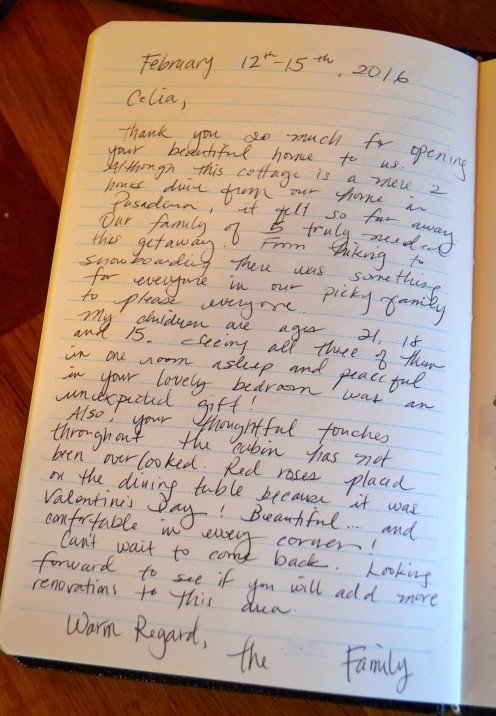 February 12th-15th, 2016
Celia,
Thank you so much for opening
your beautiful home to us.
Although this cottage is a mere 2
hours drive from our home in
Pasadena, it felt so far away
Our family of 5 truly needed
this getaway. From hiking to
snowboarding there was something
for everyone in our picky family
to please everyone.
My children are ages 21, 18
and 15. Seeing all three of them
in one room asleep and peaceful
in your lovely bedroom was an
unexpected gift!
Also, your thoughtful touches
throughout the cabin has not
been overlooked. Red roses placed
on the dining table because it was
Valentine's Day! Beautiful... and
comfortable in every corner!
Can't wait to come back. Looking
forward to see if you will add more
renovations to this area.
Warm Regard,
the Family